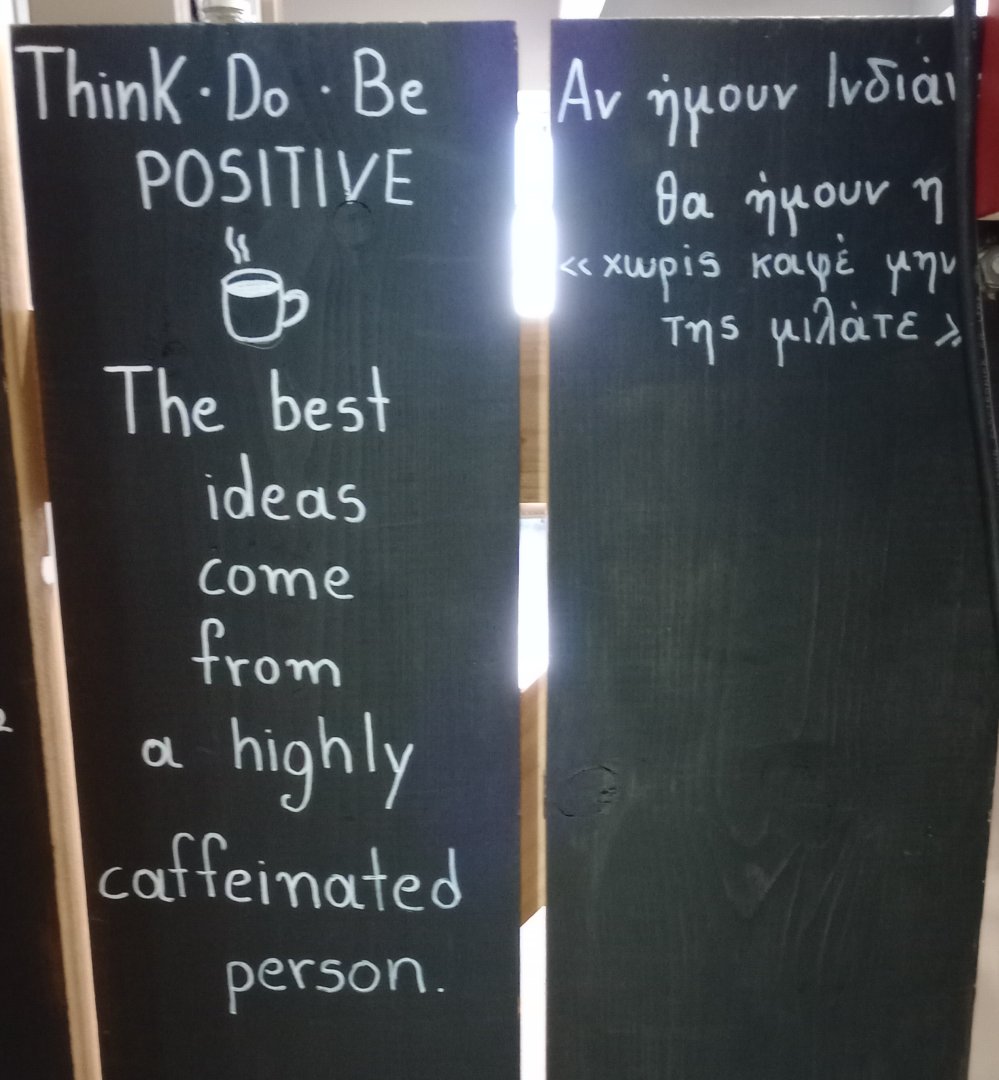 Think · Do · Be
POSITIVE
The best
ideas
come
from
a highly
caffeinated
person.
Αν ήμουν
θα ήμουν η
«χωρίς καφέ μην
της μιλάτε»